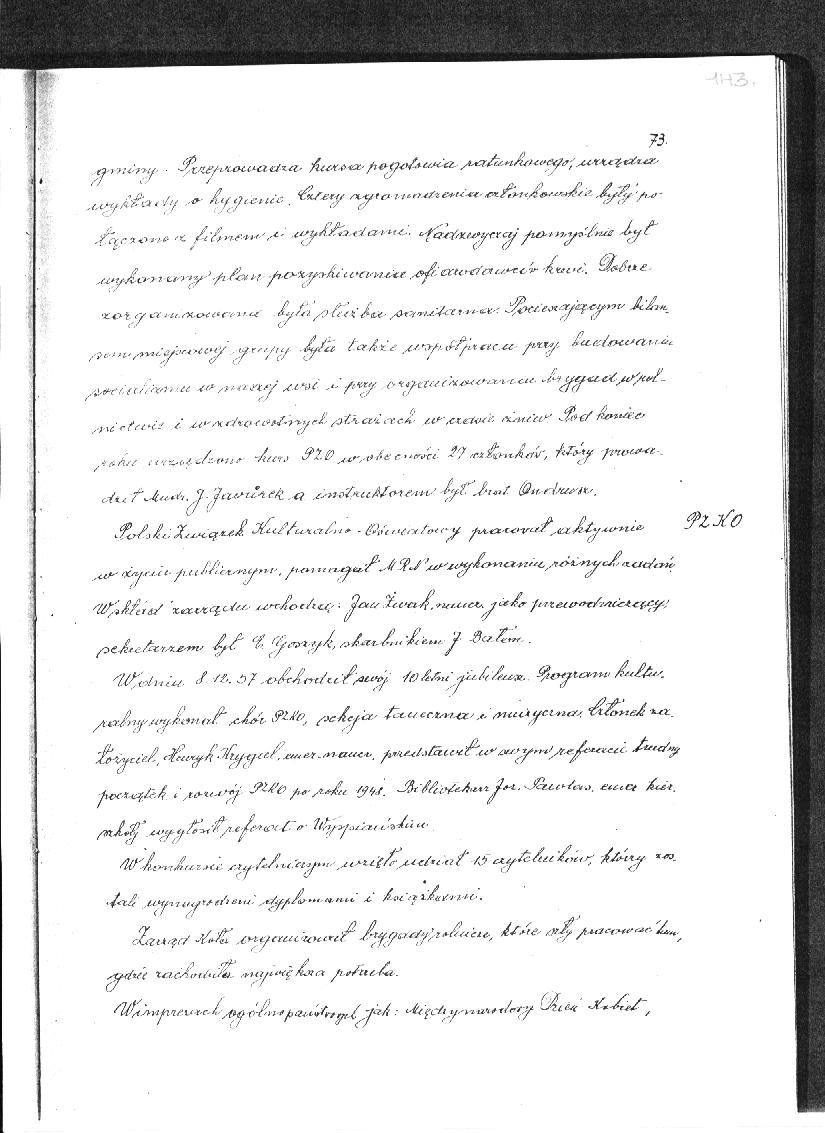 143.
73.
gminy. Przeprowadza kursa pogotowia ratunkowego, urządza
wykłady o hygienie. Cztery zgromadzenia członkowskie były po-
łączone z filmem i wykładami. Nadzwyczaj pomyślnie był
wykonany plan pozyskiwania ofiarodawców krwi. Dobrze
zorganizowana była służba sanitarna. Pocieszającym bilan-
sem miejscowej grupy była także współpraca przy budowaniu
socializmu w naszej wsi i przy organizowaniu brygad w rol-
nictwie i w zdrowotnych strażach w czasie żniw. Pod koniec
roku urządzono kurs PZO w obecności 27 członków, który prowa-
dził Mudr. J. Javůrek a instruktorem był brat Ondrusz.
Polski Związek Kulturalno-Oświatowy pracował aktywnie
PZKO
w życiu publicznym, pomagał MRN w wykonaniu różnych zadań.
W skład zarządu wchodzą: Jan Żwak, naucz. jako przewodniczący,
sekretarzem był E. Goszyk, skarbnikiem J. Baton.
W dniu 8.12.57 obchodził swój 10 letni jubileusz. Program kultu-
ralny wykonał chór PZKO, sekcja taneczna i muzyczna. Członek za-
łożyciel, Henryk Krygiel, emer. naucz. przedstawił w swym referacie trudny
początek i rozwój PZKO po roku 1948. Bibliotekarz Joz. Pawlas, emer. kier.
szkoły wygłosił referat o Wyspiańskim.
W konkursie czytelniczym wzięło udział 15 czytelników, którzy zos-
tali wynagrodzeni dyplomami i książkami.
Zarząd Koła organizował brygady rolnicze, które szły pracować tam,
gdzie zachodziła największa potrzeba.
W imprezach ogólnopaństwych jak: Międzynarodowy Dzień Kobiet,